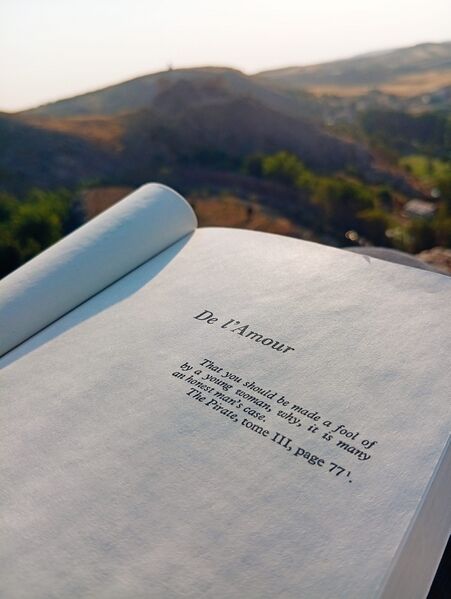 De l'Amour
That you should be made a fool of
by a young woman, why, it is many
an honest man's case.
The Pirate, tome III, page 77¹.